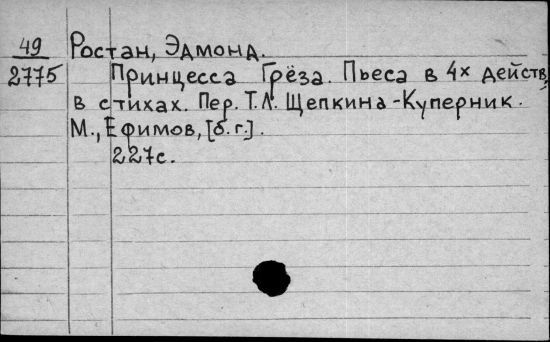 49 Ростан, Эдмонд.
2775 Принцесса Грёза. Пьеса в 4х действ.
в стихах. Пер. Т.Л. Щепкина-Куперник.
М., Ефимов, [б.г.].
227с.